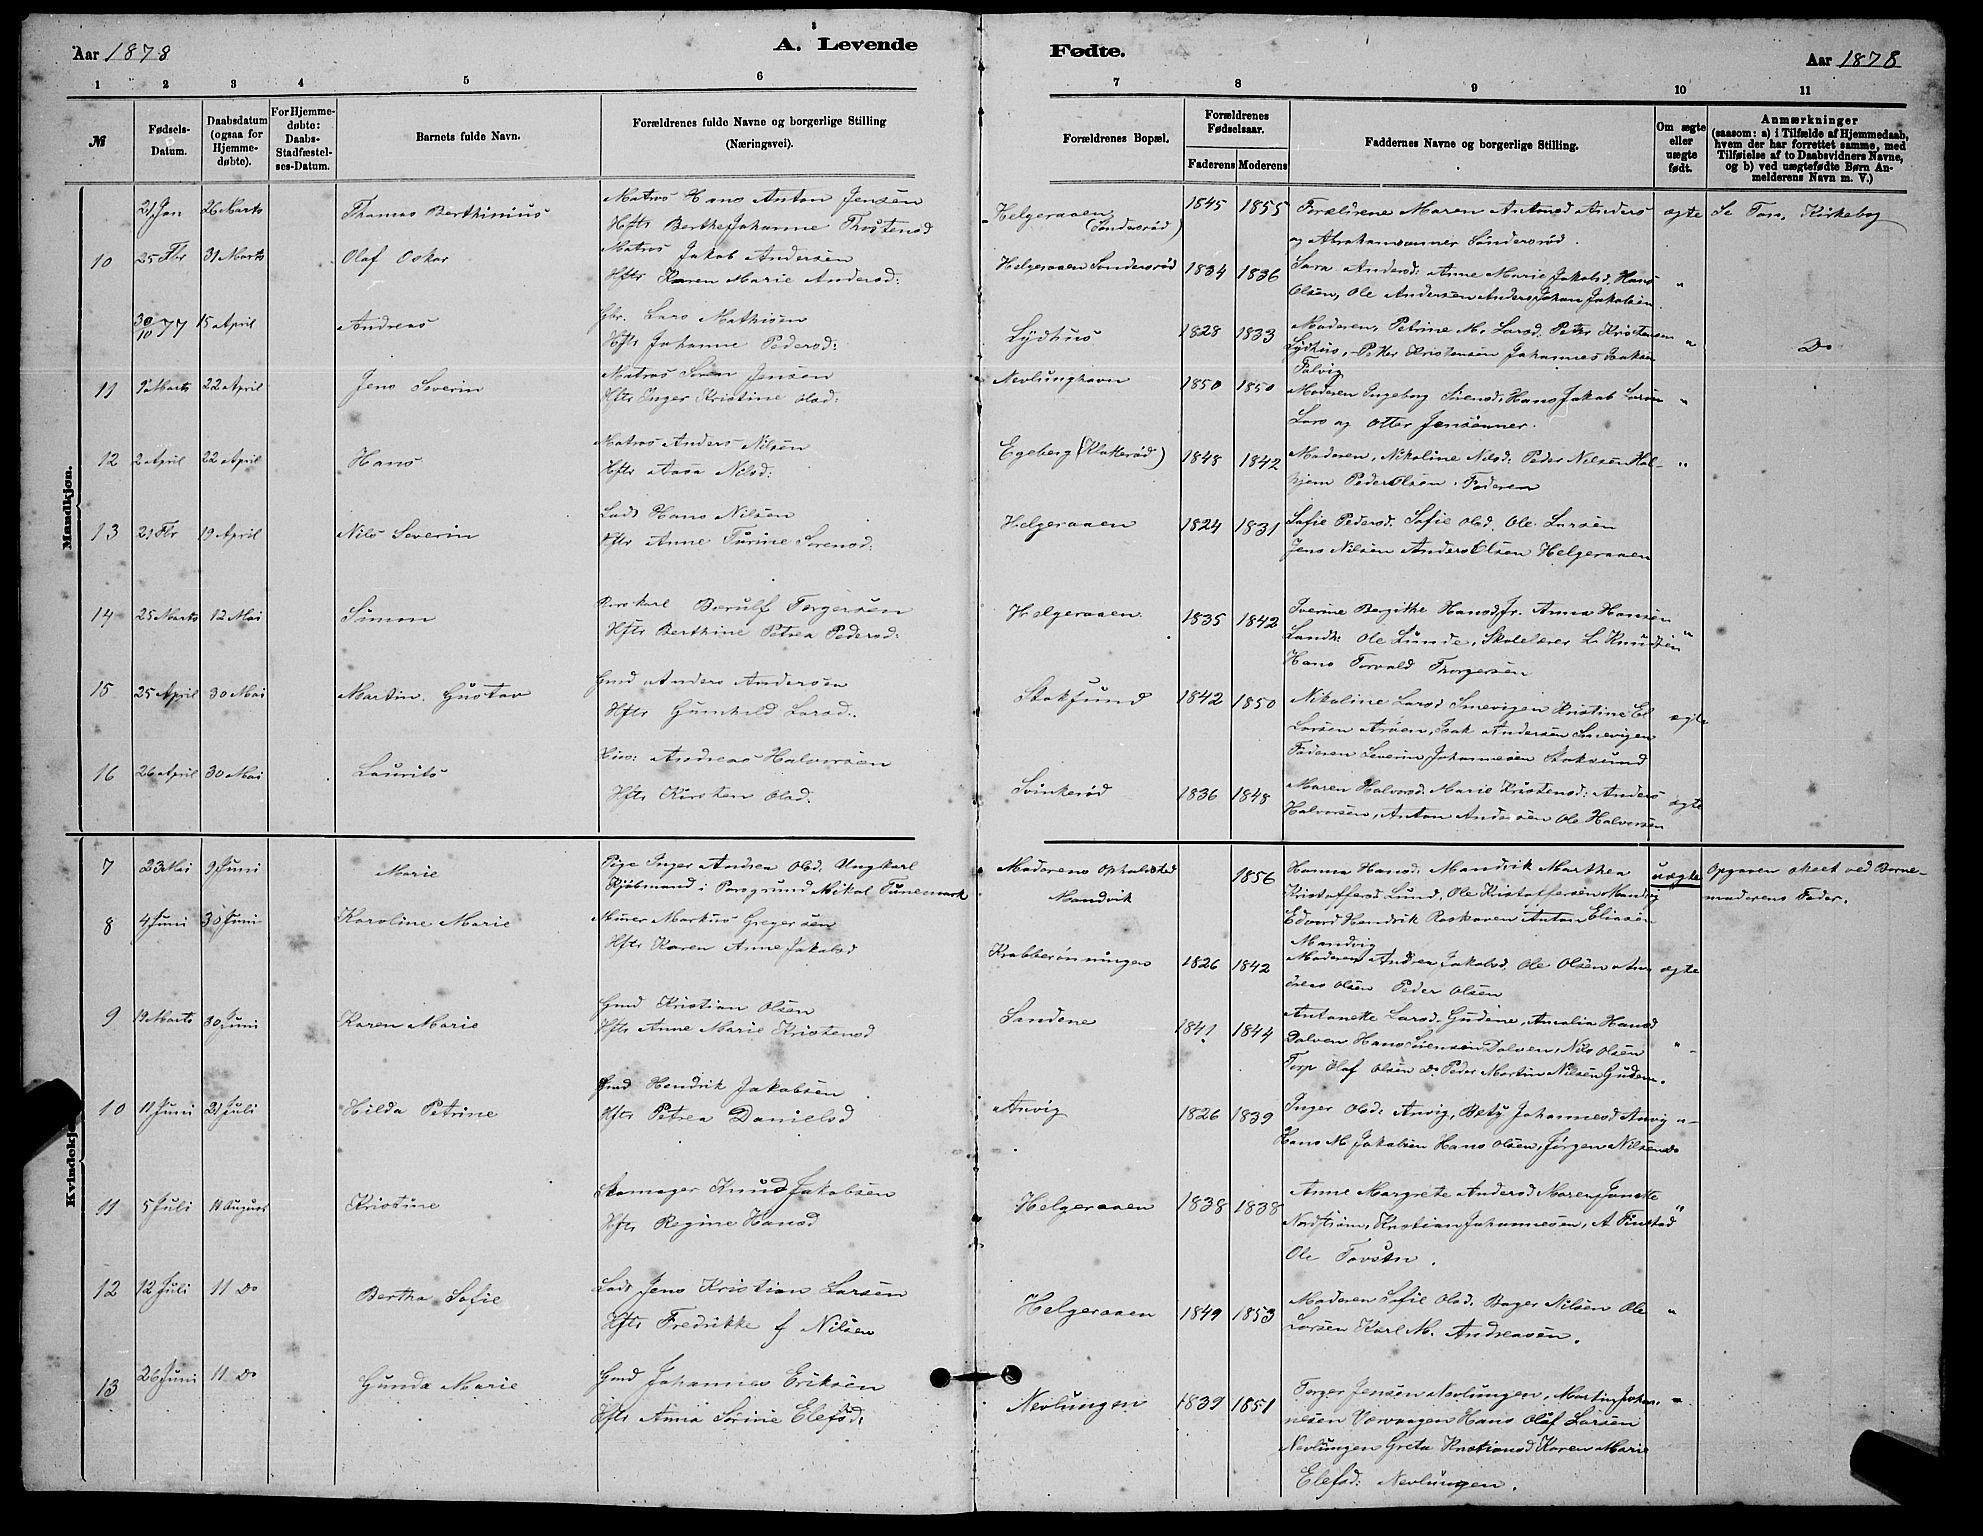 Aar 1878
A. Levende
Fødte.
Aar 1878
1 2 3 4 5 6 7 8 9 10 11
№
Fødsels-Datum.
Daabsdatum (ogsaa for Hjemme-døbte).
For Hjemme-døbte: Daabs-Stadfæstel-ses-Datum.
Barnets fulde Navn.
Forældrenes fulde Navne og borgerlige Stilling (Næringsvei).
Forældrenes Bopæl.
Forældrenes Fødselsaar.
Faderens Moderens
Faddernes Navne og borgerlige Stilling.
Om ægte eller uægte født.
Anmærkninger (saasom: a) i Tilfælde af Hjemmedaab, hvem der har forrettet samme, med Tilføielse af to Daabsvidners Navne, og b) ved uægtefødte Børn An-melderens Navn m. V.)
Mandkjøn.
21 Jan 26 Marts Thomas Berthinius Matros Hans Anton Jensen Helgeraaen 1845 1855 Forældrene Maren Antonsd Anders ægte Se Kirkebog
Hftr Berthe Johanne Thostensd (Søndersrød) og Abrahamsønner Søndersrød.
10 25 Fbr 31 Marts Olaf Oskar Matros Jakob Andersen Helgeraaen Søndersrød 1834 1836 Sara Andersd: Anne Marie Jakobsd, Hans "
Hftr Karen Marie Andersd: Olsen, Ole Andersen Anders Johan Jakobsen
30/10 77 15 April Andreas Gbr. Lars Mathisen Lydhus 1828 1833 Moderen, Petrine M. Larsd, Peter Kristensen " Do
Hftr Johanne Pedersd: Lydhus, Peter Kristensen Johannes Isaksen
Falvig
11 9 Marts 22 April Jens Severin Matros Søren Jensen Nevlunghavn 1850 1850 Moderen Ingeborg Sørensd, Hans Jakob "
Hftr Inger Kristine Olsd: Lars og Otter Jensønner.
12 2 April 22 April Hans Matros Anders Nilsen Egeberg (Klokkerød) 1848 1842 Moderen, Nikoline Nilsd: Peder Nilsen Hal- "
Hftr Aasa Nilsd. hjem Peder Olsen. Faderen
13 21 Fbr 19 April Nils Severin Lods Hans Nilsen Helgeraaen 1824 1831 Sofie Pedersd. Sofie Olsd. Ole Larsen
Hftr Anne Turine Sørensd: Jens Nilsen Anders Olsen Helgeraaen
14 25 Marts 12 Mai Simon Berulf Torgersen Helgeraaen 1835 1842 Iverine Bergithe Hansd, Fr. Anna Hansen "
Hftr Berthine Petrea Pedersd: Ole Lunde, Skolelærer L. Knudsen
Hans Torvald Thorgersen
15 25 April 30 Mai Martin Gustav Gmd Anders Andersen Stoksund 1842 1850 Nikoline Larsd Smevigen Kristine El ægte
Hftr Gunhild Larsd. Larsen Arøen, Isak Andersen Smevigen
Faderen Severin Johannesen Stoksund
16 26 April 30 Mai Laurits Andreas Halvorsen Svinkerød 1836 1848 Maren Halvorsd. Marie Kristensd: Anders ægte
Hftr Karsten Olsd. Halvorsen, Anton Andersen Ole Halvorsen
Kvindekjøn
7 23 Mai 9 Juni Marie Pige Inger Andrea Olsd. Ungkarl Moderens Opholdsted 1856 Hanna Hansd: Mandvik Marthea uægte Opgaven skeet ved Barne-
Kjøbmand i Porsgrund Nikol. Mandvik Kristoffersd Lund, Ole Kristoffersen Mandvig moderens Fader.
Edvard Hendrik Anton Eliasen
Mandvig
8 4 Juni 30 Juni Karoline Marie Murer Markus Gregersen Krabberønningen 1826 1842 Moderen Andrea Jakobsd. Ole Olsen An- ægte
Hftr Karen Anne Jakobsd dreas Olsen Peder Olsen
9 19 Marts 30 Juni Karen Marie Gmd Kristian Olsen Sandene 1841 1844 Antonette Larsd. Gudene, Amalia Hansd "
Hftr Anne Marie Kristensd Dolven Hans Sørensen Dolven, Nils Olsen
Torp Olaf Olsen Do Peder Martin Nilsen Guden.
10 11 Juni 21 Juli Hilda Petrine Gmd Hendrik Jakobsen Anvig 1826 1839 Inger Olsd: Anvig, Bety Johannesd Anvig "
Hftr Petrea Danielsd Hans M. Jakobsen Hans Olsen, Jørgen Nilsen Do
11 5 Juli 11 August Kristine Skomager Knud Jakobsen Helgeraaen 1838 1838 Anne Margrete Andersd Maren Janette "
Hftr Regine Hansd Nordstrøm, Kristian Johannesen, A Finstad
Ole
12 12 Juli 11 Do Bertha Sofie Lods Jens Kristian Larsen Helgeraaen 1849 1853 Moderen Sofie Olsd. Bager Nilsen Ole "
Hftr Fredrikke f Nilsen Larsen Karl M. Andreasen.
13 26 Juni 11 Do Gunda Marie Gmd Johannes Eriksen Nevlungen 1839 1851 Torger Jensen Nevlungen, Martin Johan- "
Hftr Anna Sørine Elefsd: nesen Varvaagen Hans Olaf Larsen
Nevlungen Greta Kristiansd Karen Marie
Elefsd: Nevlungen.